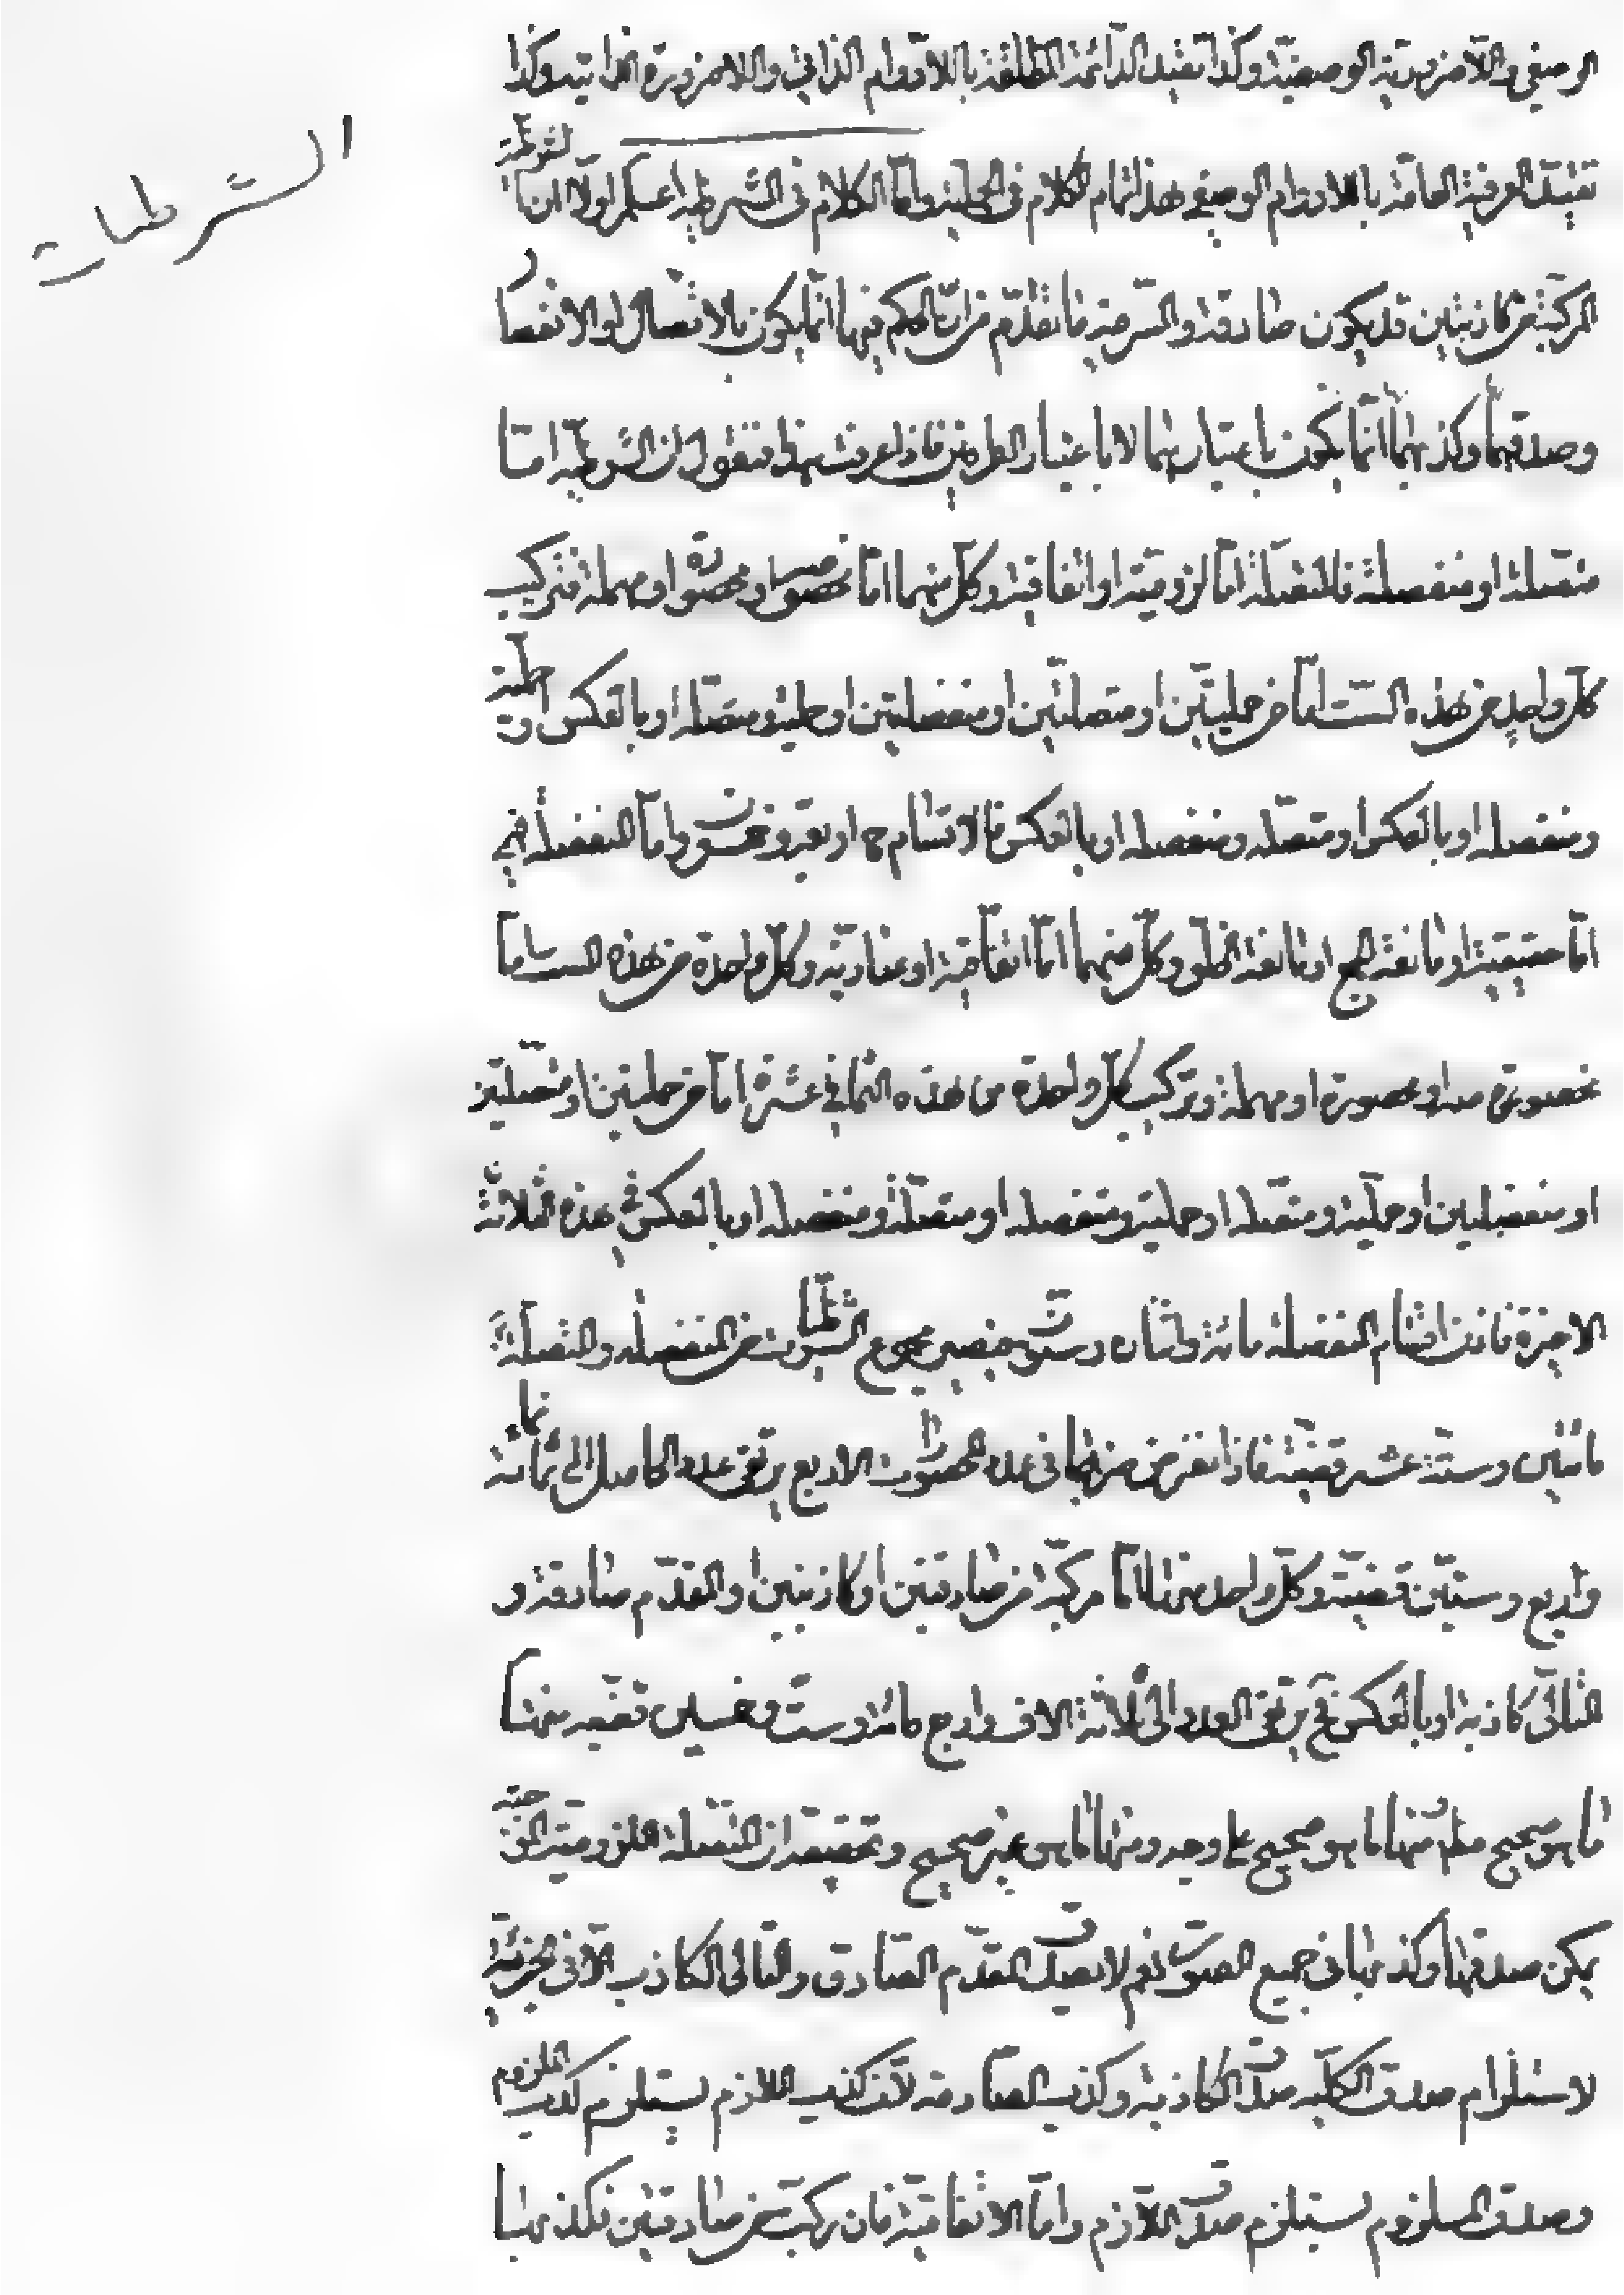 الوصفي واللاضرورية الوصفية وكذا تقييد الدائمة المطلقة باللادوام الذاتي واللاضرورة الذاتية وكذا
الشرطيات
تقييد العرفية العامة باللادوام الوصفي هذا تمام الكلام في الحملية واما الكلام في الشرطية اعلم اولا ان الشرطية
المركبة من كاذبتين قد يكون صادقة والسر فيه ما تقدم من ان الحكم فيها انما يكون بالاتصال او الانفصال
وصدقهما وكذبهما انما يكون باعتبارهما لا باعتبار الطرفين فاذا عرفت هذا فنقول ان الشرطية اما
متصلة او منفصلة فالمتصلة اما لزومية او اتفاقية وكل منهما اما مخصوصة او محصورة او مهملة فتركيب
كل واحد من هذه الست اما من حمليتين او متصلتين او منفصلتين او حملية ومتصلة او بالعكس او حملية
ومنفصلة او بالعكس او متصلة ومنفصلة او بالعكس فالاقسام ح اربعة وخمسون واما المنفصلة فهي
اما حقيقية او مانعة الجمع او مانعة الخلو وكل منهما اما اتفاقية او عنادية وكل واحدة من هذه الست اما
مخصوصة او محصورة او مهملة وتركيب كل واحدة من هذه الثماني عشرة اما من حمليتين او متصلتين
او منفصلتين او حملية ومتصلة او حملية ومنفصلة او متصلة ومنفصلة او بالعكس في هذه الثلاثة
الاخيرة فانت اقسام المنفصلة مائة واثنان وستون فيصير مجموع الشرطيات من المنفصلة والمتصلة
مائتين وستة عشر قضية فاذا نفرض ضربها في عدد المحصورات الاربع يرتقى عدد الحاصل الى ثمانمائة
واربع وستين قضية وكل واحد منها اما مركبة من صادقتين او كاذبتين او المقدم صادقة و
التالى كاذبة او بالعكس فح يرتقى العدد الى ثلاثة الاف واربع مائة وست وخمسين قضية منها
ما هو صحيح مطلقا ومنها ما هو صحيح على وجه ومنها ما هو غير صحيح وتحقيقه ان المتصلة اللزومية الموجبة
يمكن صدقها وكذبها في جميع الصور نعم لا يصدق المقدم الصادق والتالى الكاذب الا في الجزئية
لاستلزام صدق الكلية صدق الكاذبة وكذب الصادقة لان كذب اللازم يستلزم كذب الملزوم
وصدق الملزوم يستلزم صدق اللازم واما الاتفاقية فان ركبت من صادقتين فكذبها